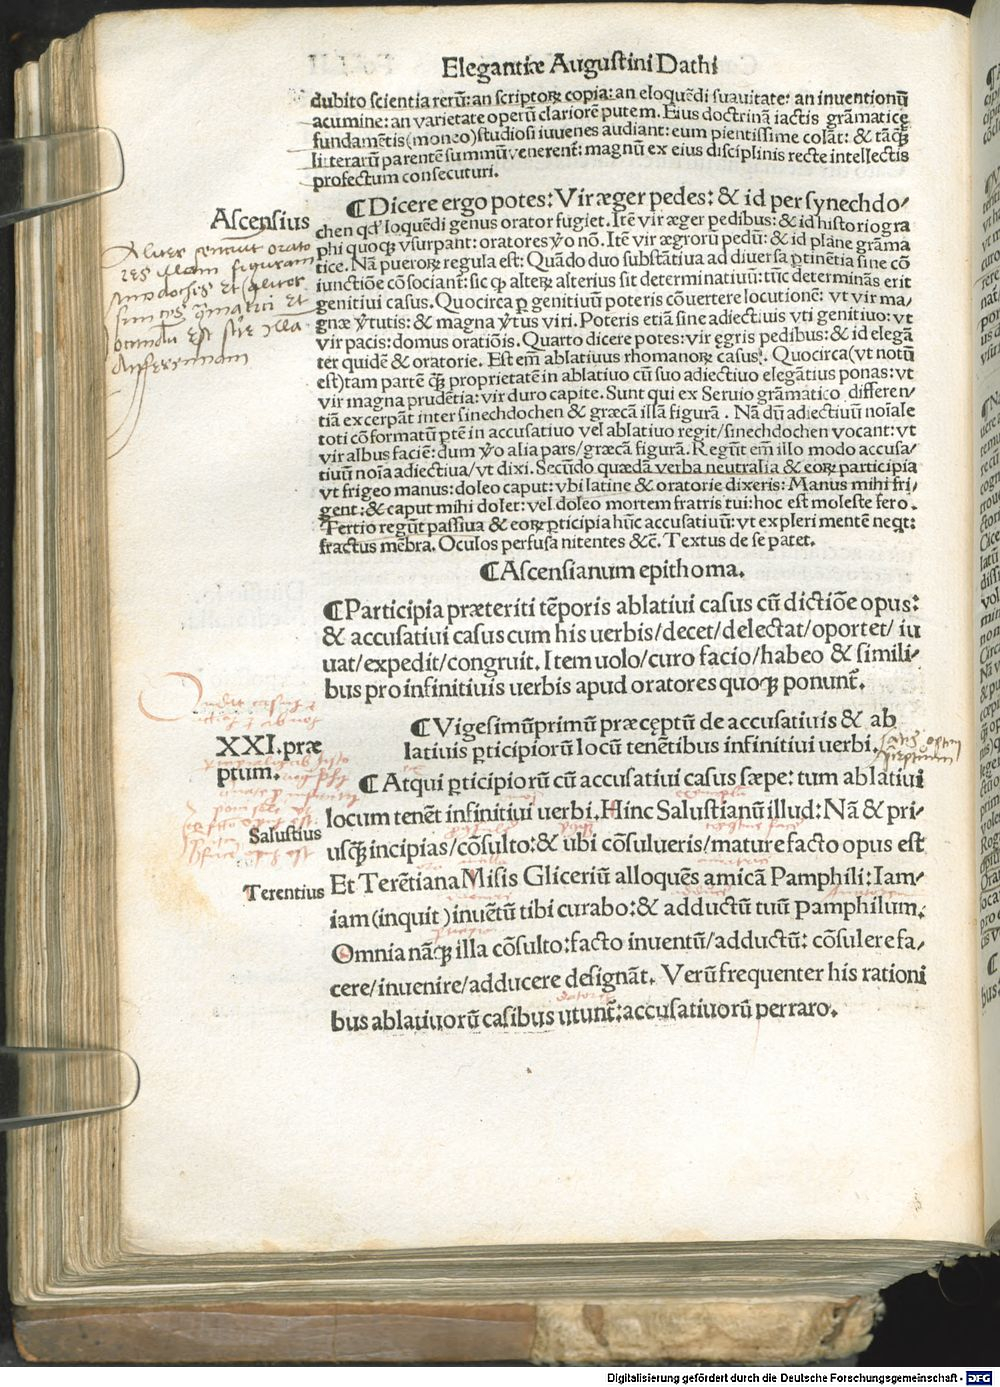 Elegantiæ Augustini Dathi
dubito scientia rerū: an scriptoꝝ copia: an eloquēdi suauitate: an inuentionū
acumine: an varietate operū clariorē putem. Eius doctrinā iactis grāmaticę
fundamētis (moneo) studiosi iuuenes audiant: eum pientissime colāt: & tāq̃ꝫ
litterarū parentē summū venerent̄: magnū ex eius disciplinis recte intellectis
profectum consecuturi.
Ascensius
¶ Dicere ergo potes: Vir æger pedes: & id per synechdo/
chen qd̕ loquēdi genus orator fugiet. Itē vir æger pedibus: & id historiogra
phi quoqꝫ vsurpant: oratores ṽo nō. Itē vir ægrorū pedū: & id plane grāma
tice. Nā pueroꝝ regula est: Quādo duo substātiua ad diuersa ꝑtinētia sine cō
iunctiōe cōsociant̄: sic qꝫ alteꝝ alterius sit determinatiuū: tūc determinās erit
genitiui casus. Quocirca ꝑ genitiuū poteris cōuertere locutionē: vt vir ma/
gnæ ṽtutis: & magna ṽtus viri. Poteris etiā sine adiectiuis vti genitiuo: vt
vir pacis: domus oratiōis. Quarto dicere potes: vir ęgris pedibus: & id elegā
ter quidē & oratorie. Est em̄ ablatiuus rhomanoꝝ casus. Quocirca (vt notū
est) tam partē q̃ꝫ proprietatē in ablatiuo cū suo adiectiuo elegātius ponas: vt
vir magna prudētia: vir duro capite. Sunt qui ex Seruio grāmatico differen/
tiā excerpāt inter sinechdochen & græcā illā figurā. Nā dū adiectiuū noīale
toti cōformatū ꝑtē in accusatiuo vel ablatiuo regit/ sinechdochen vocant: vt
vir albus faciē: dum ṽo alia pars/ græcā figurā. Regūt em̄ illo modo accusa/
tiuū noīa adiectiua/ vt dixi. Secūdo quædā verba neutralia & eoꝝ participia
vt frigeo manus: doleo caput: vbi latine & oratorie dixeris: Manus mihi fri/
gent: & caput mihi dolet: vel doleo mortem fratris tui: hoc est moleste fero.
Tertio regūt passiua & eoꝝ ꝑticipia hūc accusatiuū: vt expleri mentē neqt:
fractus mēbra. Oculos perfusa nitentes &c̄. Textus de se patet.
¶ Ascensianum epithoma.
¶ Participia præteriti tēporis ablatiui casus cū dictiōe opus:
& accusatiui casus cum his uerbis/ decet/ delectat/ oportet/ iu
uat/ expedit/ congruit. Item uolo/ curo facio/ habeo & simili/
bus pro infinitiuis uerbis apud oratores quoqꝫ ponunt̄.
XXI. præ
ptum.
¶ Vigesimūprimū præcęptū de accusatiuis & ab
latiuis ꝑticipiorū locū tenētibus infinitiui uerbi.
¶ Atqui ꝑticipiorū cū accusatiui casus sæpe: tum ablatiui
locum tenēt infinitiui uerbi. Hinc Salustianū illud: Nā & pri/
Salustius
usq̃ꝫ incipias/ cōsulto: & ubi cōsulueris/ mature facto opus est
Terentius
Et Terētiana Misis Gliceriū alloquēs amicā Pamphili: Iam/
iam (inquit) inuētū tibi curabo: & adductū tuū Pamphilum.
Omnia nāqꝫ illa cōsulto: facto inuentū/ adductū: cōsulere fa/
cere/ inuenire/ adducere designāt. Verū frequenter his rationi
bus ablatiuorū casibus utunt̄: accusatiuorū perraro.
Digitalisierung gefördert durch die Deutsche Forschungsgemeinschaft - DFG